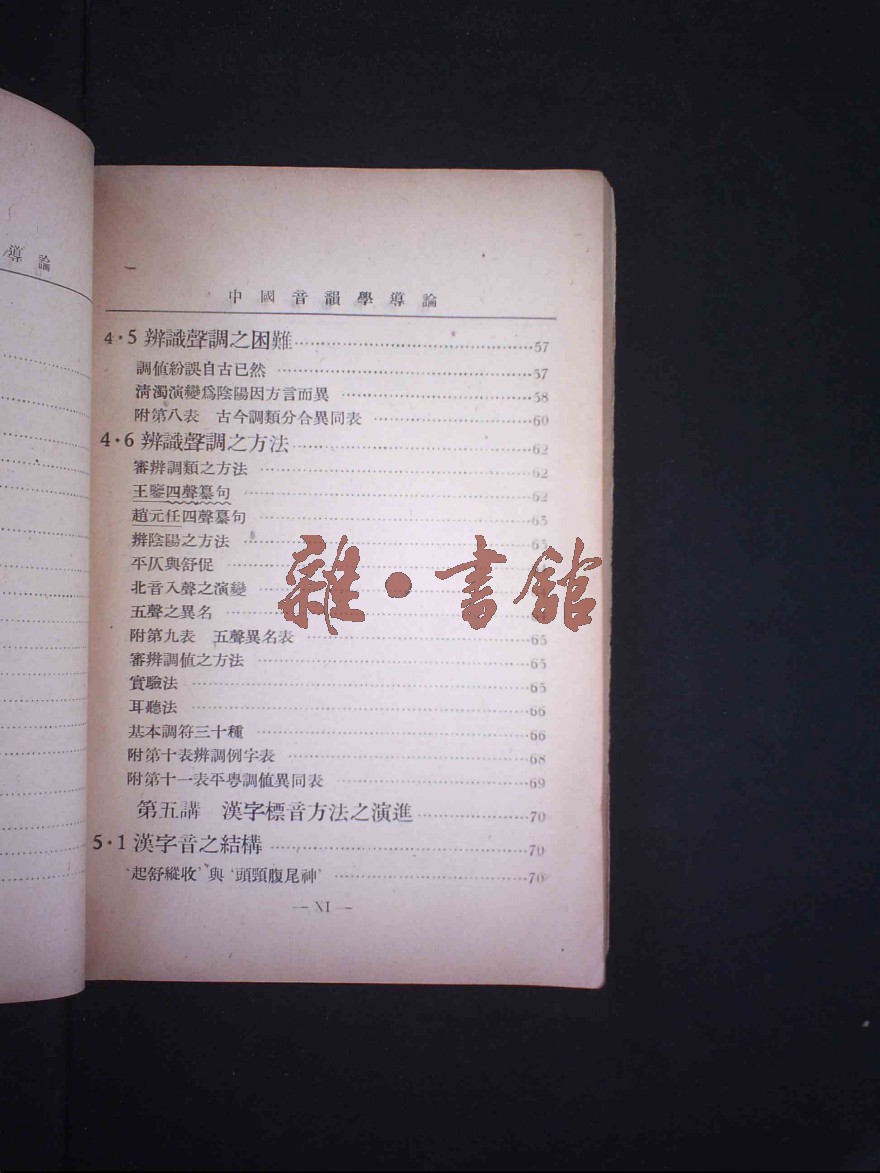 導論
中國音韻學導論
4·5 辨識聲調之困難 57
調值紛誤自古已然 57
清濁演變爲陰陽因方言而異 58
附第八表 古今調類分合異同表 60
4·6 辨識聲調之方法 62
審辨調類之方法 62
王鑒四聲纂句 62
趙元任四聲纂句 63
辨陰陽之方法 63
平仄與舒促
北音入聲之演變
五聲之異名
附第九表 五聲異名表 65
審辨調值之方法 65
實驗法 65
耳聽法 66
基本調符三十種 66
附第十表辨調例字表 68
附第十一表平粵調值異同表 69
第五講 漢字標音方法之演進 70
5·1 漢字音之結構 70
'起舒縱收'與'頭頸腹尾神' 70
— XI —
雜·書館